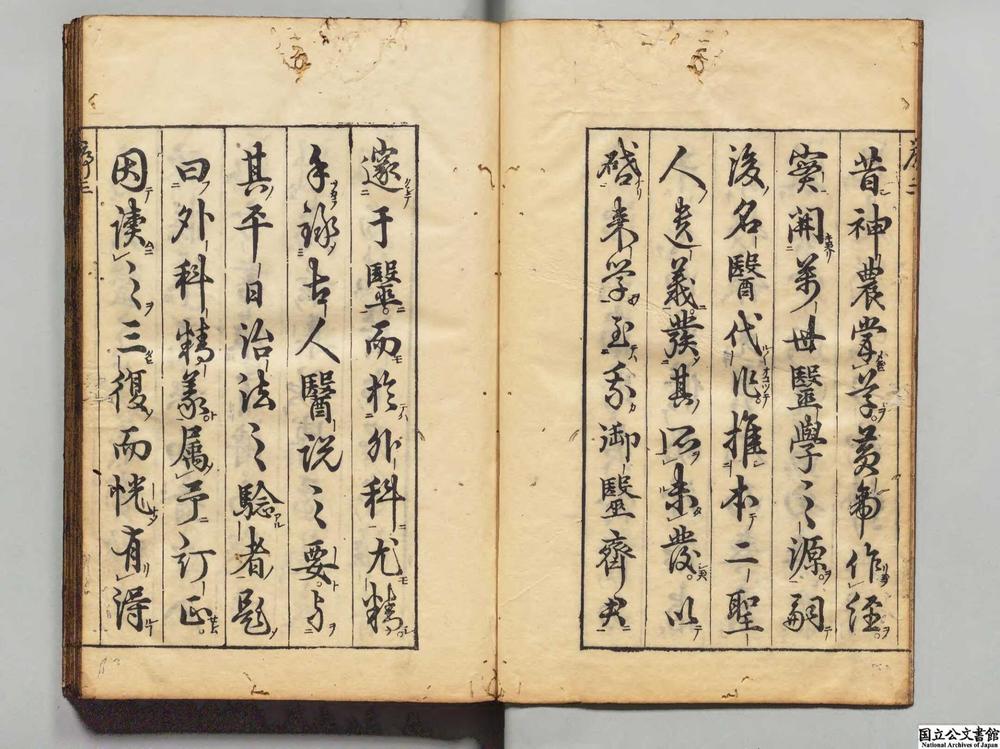 昔神農嘗草黄帝作經
實開萬世醫學之源嗣
後名醫代作推本二聖
人遺義發其所未發以
啓来学至我御醫齊君
邃于醫而於外科尤精
手錄古人醫説之要与
其平日治法之驗者題
曰外科精義属予訂正
因読之三復而恍有得
国立公文書館
National Archives of Japan